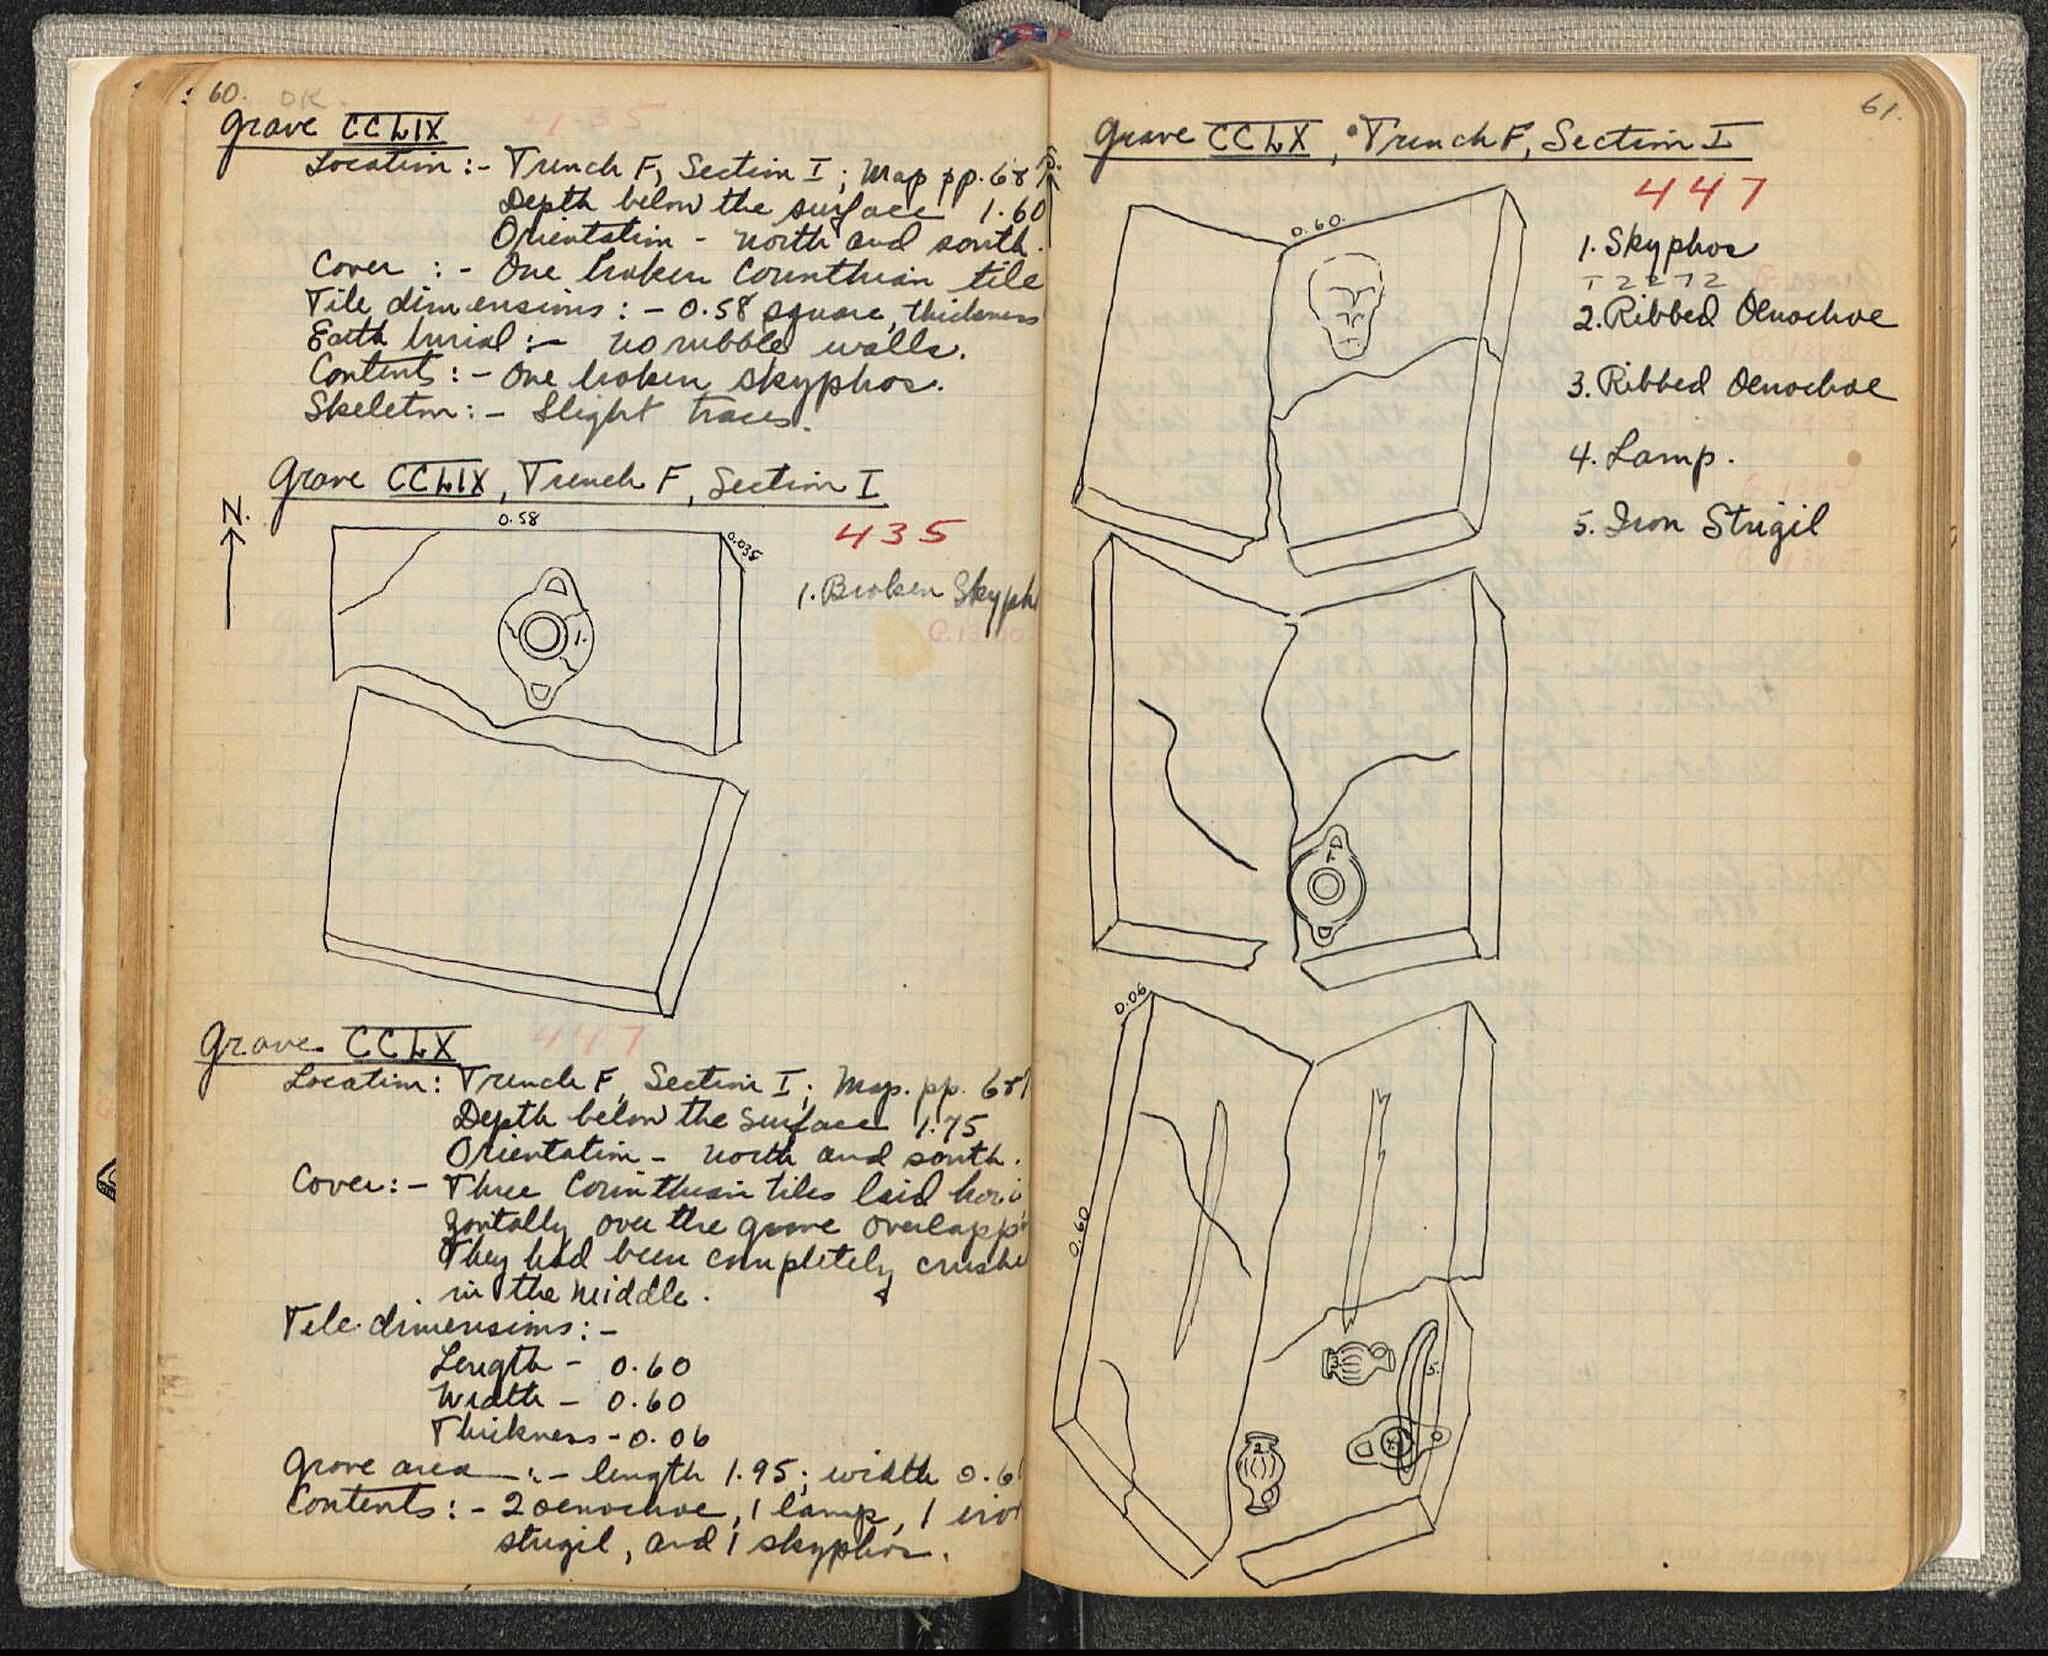 60. OK.
435
Grave CCLIX
Location :- Trench F, Section I ; Map pp. 68
Depth below the surface 1.60
Orientation - North and south.
Cover :- One broken Corinthian tile
Tile dimensions :- 0.58 square, thickness
Earth burial :- No rubble walls.
Contents :- One broken skyphos.
Skeleton :- Slight traces.
Grave CCLIX, Trench F, Section I
N.
0.58
0.035
435
1.
1. Broken Skyph
Grave CCLX
447
Location : Trench F, Section I ; Map. pp. 68
Depth below the surface 1.75
Orientation - North and south.
Cover :- Three Corinthian tiles laid hori
zontally over the grave overlapp
They had been completely crushe
in the middle.
Tile dimensions :-
Length - 0.60
Width - 0.60
Thickness - 0.06
Grave area :- length 1.95; width 0.6
Contents :- 2 oenochoe, 1 lamp, 1 iron
strigil, and 1 skyphos.
61.
Grave CCLX, Trench F, Section I
447
0.60
1. Skyphos
T 2272
2. Ribbed Oenochoe
3. Ribbed Oenochoe
4. Lamp.
5. Iron Strigil
1.
0.06
0.60
3
5.
2
4